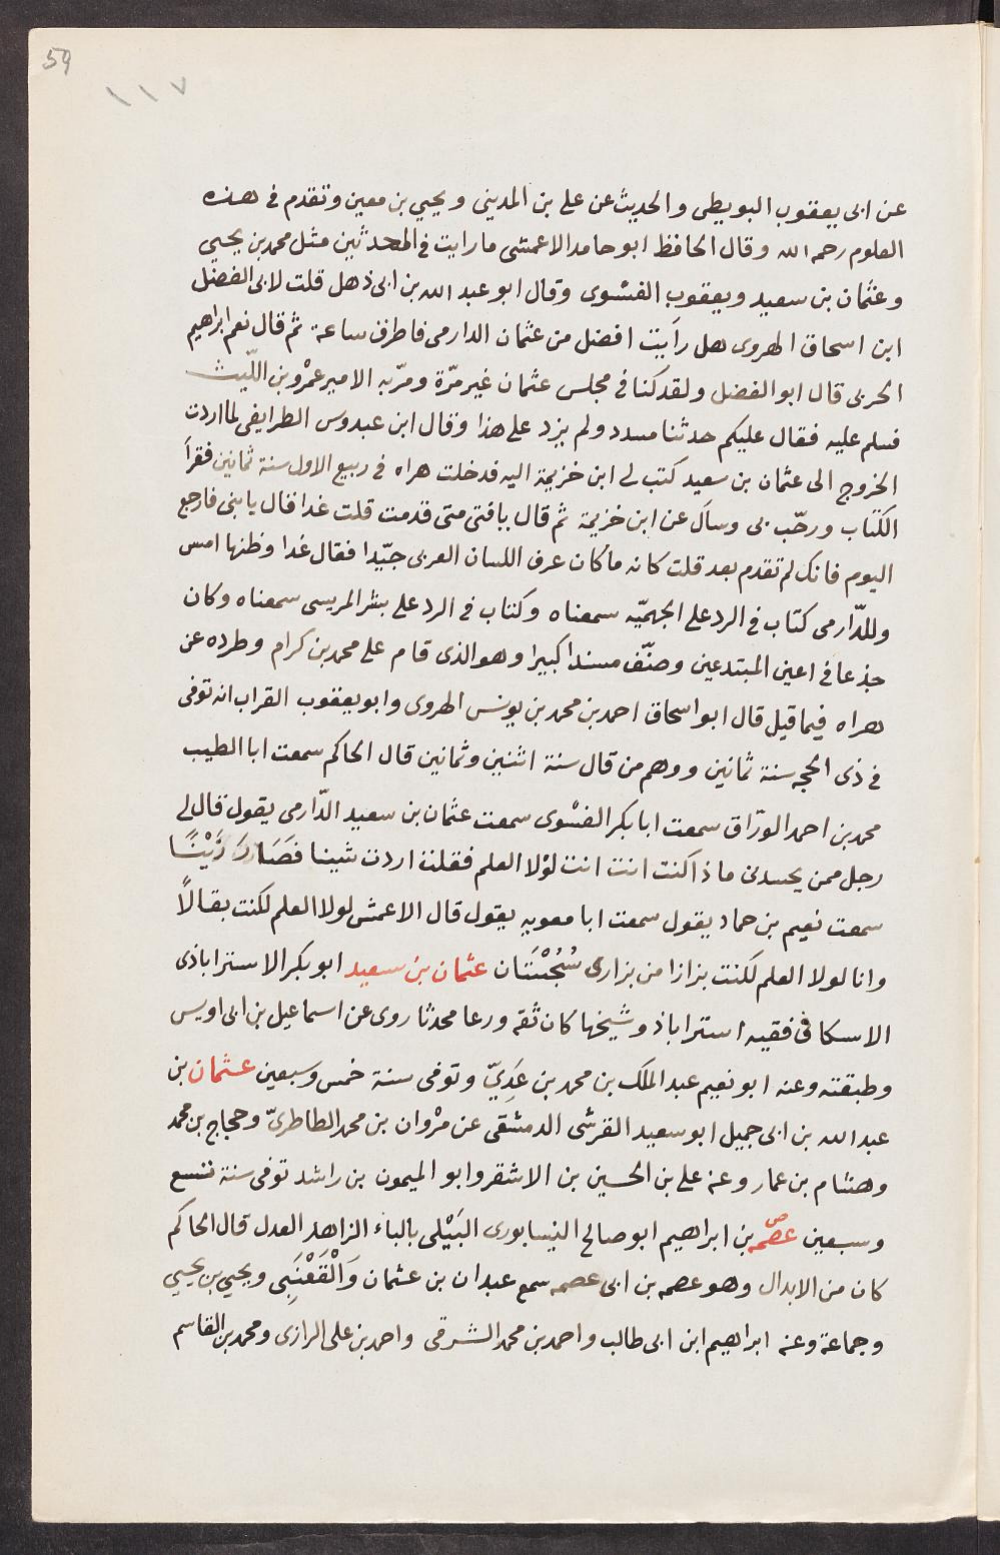 59
١١٧
عن ابى يعقوب البويطى والحديث عن على بن المديني ويحيي بن معين وتقدم فى هذه
العلوم رحمه الله وقال الحافظ ابو حامد الاعمشى ما رايت فى المحدثين مثل محمد بن يحيي
وعثمان بن سعيد ويعقوب الفسْوى وقال ابو عبد الله بن ابى ذهل قلت لابى الفضل
ابن اسحاق الهروى هل رأيت افضل من عثمان الدارمى فاطرق ساعة ثم قال نعم ابراهيم
الحربى قال ابو الفضل ولقد كنا فى مجلس عثمان غير مرّة ومرّ به الامير عمْرو بن اللّيث
فسلم عليه فقال عليكم حدثنا مسدد ولم يزد على هذا وقال ابن عبدوس الطرايفى لما اردت
الخروج الى عثمان بن سعيد كتب لى ابن خزيمة اليه فدخلت هراه فى ربيع الاول سنة ثمانين فقرأ
الكتاب ورحّب بى وسأل عن ابن خزيمة ثم قال يافتى متى قدمت قلت غدا قال يا بنى فارجع
اليوم فانك لم تقدم بعد قلت كانه ما كان عرف اللسان العربى جيّدا فقال غدا وظنها امس
وللدّارمى كتاب فى الرد على الجهميّه سمعناه وكتاب فى الرد على بشر المريسى سمعناه وكان
جذعا فى اعين المبتدعين وصنّف مسندا كبيرا وهو الذى قام على محمد بن كرام وطرده عن
هراه فيما قيل قال ابو اسحاق احمد بن محمد بن يونس الهروى وابو يعقوب القراب انه توفى
فى ذى الحجه سنة ثمانين ووهم من قال سنة اثنين وثمانين قال الحاكم سمعت ابا الطيب
محمد بن احمد الورّاق سمعت ابا بكر الفسْوى سمعت عثمان بن سعيد الدّارمى يقول قال لى
رجل ممن يحسدنى ماذا كنت انت انت لوْلا العلم فقلت اردت شينا فصَار زَيْنًا
سمعت نعيم بن حماد يقول سمعت ابا معويه يقول قال الاعمش لولا العلم لكنت بقالاً
وانا لولا العلم لكنت بزازا من بزازى سُجُسْتَان عثمان بن سعيد ابو بكر الاستراباذى
الاسكافى فقيه استراباذ وشيخها كان ثقه ورعا محدثا روى عن اسماعيل بن ابى اويس
وطبقته وعنه ابو نعيم عبد الملك بن محمد بن عَدِيّ وتوفى سنة خمس وسبعين عثمان بن
عبد الله بن ابى جميل ابو سعيد القرشى الدمشقى عن مرْوان بن محمد الطاطرىّ وحجاج بن محمد
وهشام بن عمار وعنه على بن الحسين بن الاشقر وابو الميمون بن راشد توفى سنة تسع
وسبعين عصمه بن ابراهيم ابو صالح النيسابورى البَيْلى بالباء الزاهد العدل قال الحاكم
كان من الابدال وهو عصمه بن ابى عصمه سمع عبدان بن عثمان وَالْقَعْنَبِى ويحيي بن يحيي
وجماعة وعنه ابراهيم ابن ابى طالب واحمد بن محمد الشرقى واحمد بن على الرازى ومحمد بن القاسم